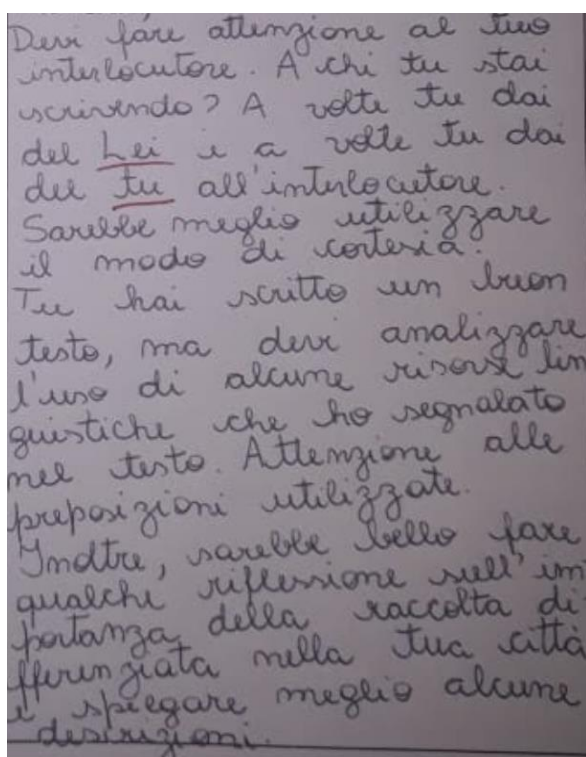 Devi fare attenzione al tuo
interlocutore. A chi tu stai
scrivendo? A volte tu dai
del Lei e a volte tu dai
del tu all'interlocutore.
Sarebbe meglio utilizzare
il modo di cortesia.
Tu hai scritto un buon
testo, ma devi analizzare
l'uso di alcune risorse lin
guistiche che ho segnalato
nel testo. Attenzione alle
preposizioni utilizzate.
Inoltre, sarebbe bello fare
qualche riflessione sull'im
portanza della raccolta di
fferenziata nella tua città
e spiegare meglio alcune
descrizioni.